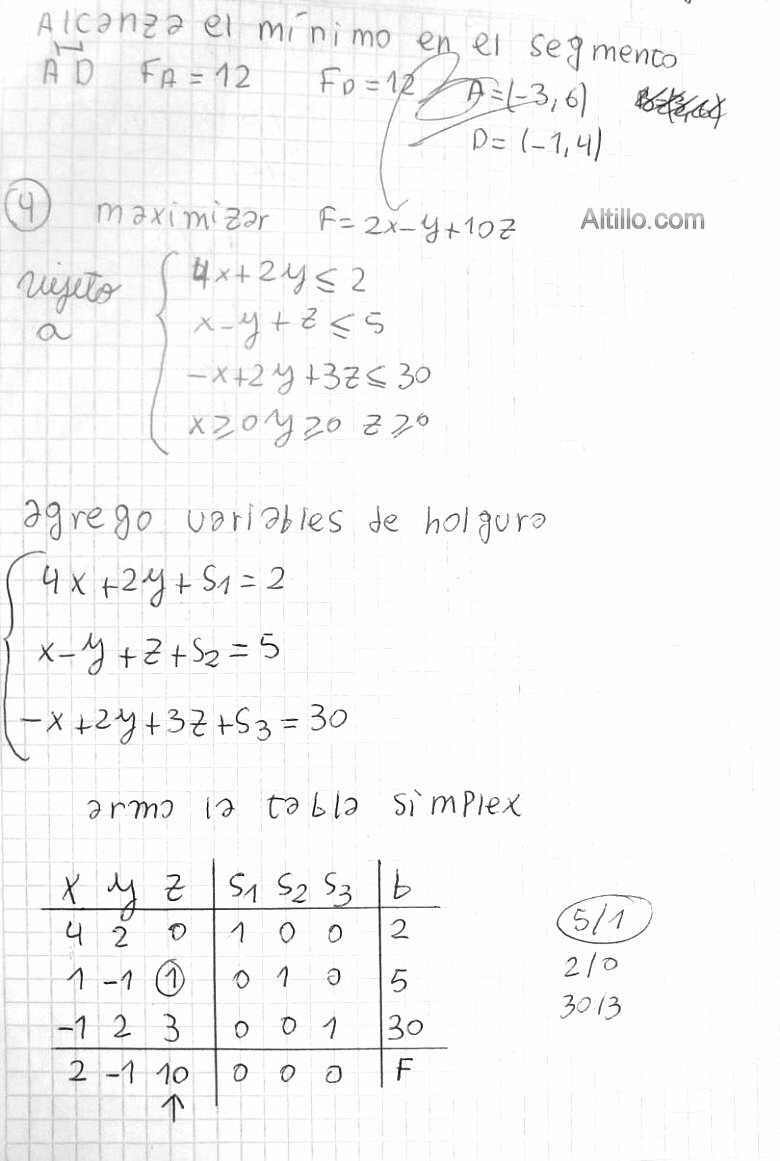 Alcanza el mínimo en el segmento
AD FA = 12 FD = 12 A = (-3, 6)
D = (-1, 4)
4 maximizar F = 2x - y + 10z Altillo.com
sujeto a
4x + 2y ≤ 2
x - y + z ≤ 5
-x + 2y + 3z ≤ 30
x ≥ 0 y ≥ 0 z ≥ 0
agrego variables de holgura
4x + 2y + S1 = 2
x - y + z + S2 = 5
-x + 2y + 3z + S3 = 30
armo la tabla simplex
x y z S1 S2 S3 b
4 2 0 1 0 0 2 5/1
1 -1 1 0 1 0 5 2/0
-1 2 3 0 0 1 30 30/3
2 -1 10 0 0 0 F
↑